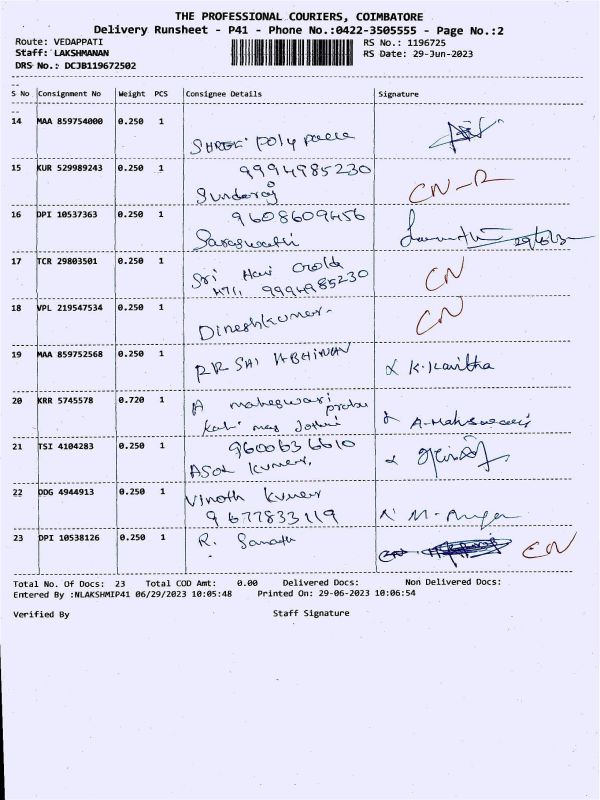 THE PROFESSIONAL COURIERS, COIMBATORE
Delivery Runsheet - P41 - Phone No.:0422-3505555 - Page No.:2
Route: VEDAPPATI RS No.: 1196725
Staff: LAKSHMANAN RS Date: 29-Jun-2023
DRS No.: DCJB119672502
S No Consignment No Weight PCS Consignee Details Signature
14 MAA 859754000 0.250 1
SHREE Poly
15 KUR 529989243 0.250 1 9994985230
Sundaraj CN-R
16 DPI 10537363 0.250 1 9608609456
Saraswathi 29/6/23
17 TCR 29803501 0.250 1 Sri Hari CN
9994985230
18 VPL 219547534 0.250 1 CN
Dineshkumar
19 MAA 859752568 0.250 1 RR SAI ABHINAV K.Kavitha
20 KRR 5745578 0.720 1 A maheswari prabu
A-Maheswari
21 TSI 4104283 0.250 1 9600636610
ASOK kumar,
22 DDG 4944913 0.250 1 Vinoth kumar
9677833119 M-
23 DPI 10538126 0.250 1 R. CN
Total No. Of Docs: 23 Total COD Amt: 0.00 Delivered Docs: Non Delivered Docs:
Entered By :NLAKSHMIP41 06/29/2023 10:05:48 Printed On: 29-06-2023 10:06:54
Verified By Staff Signature